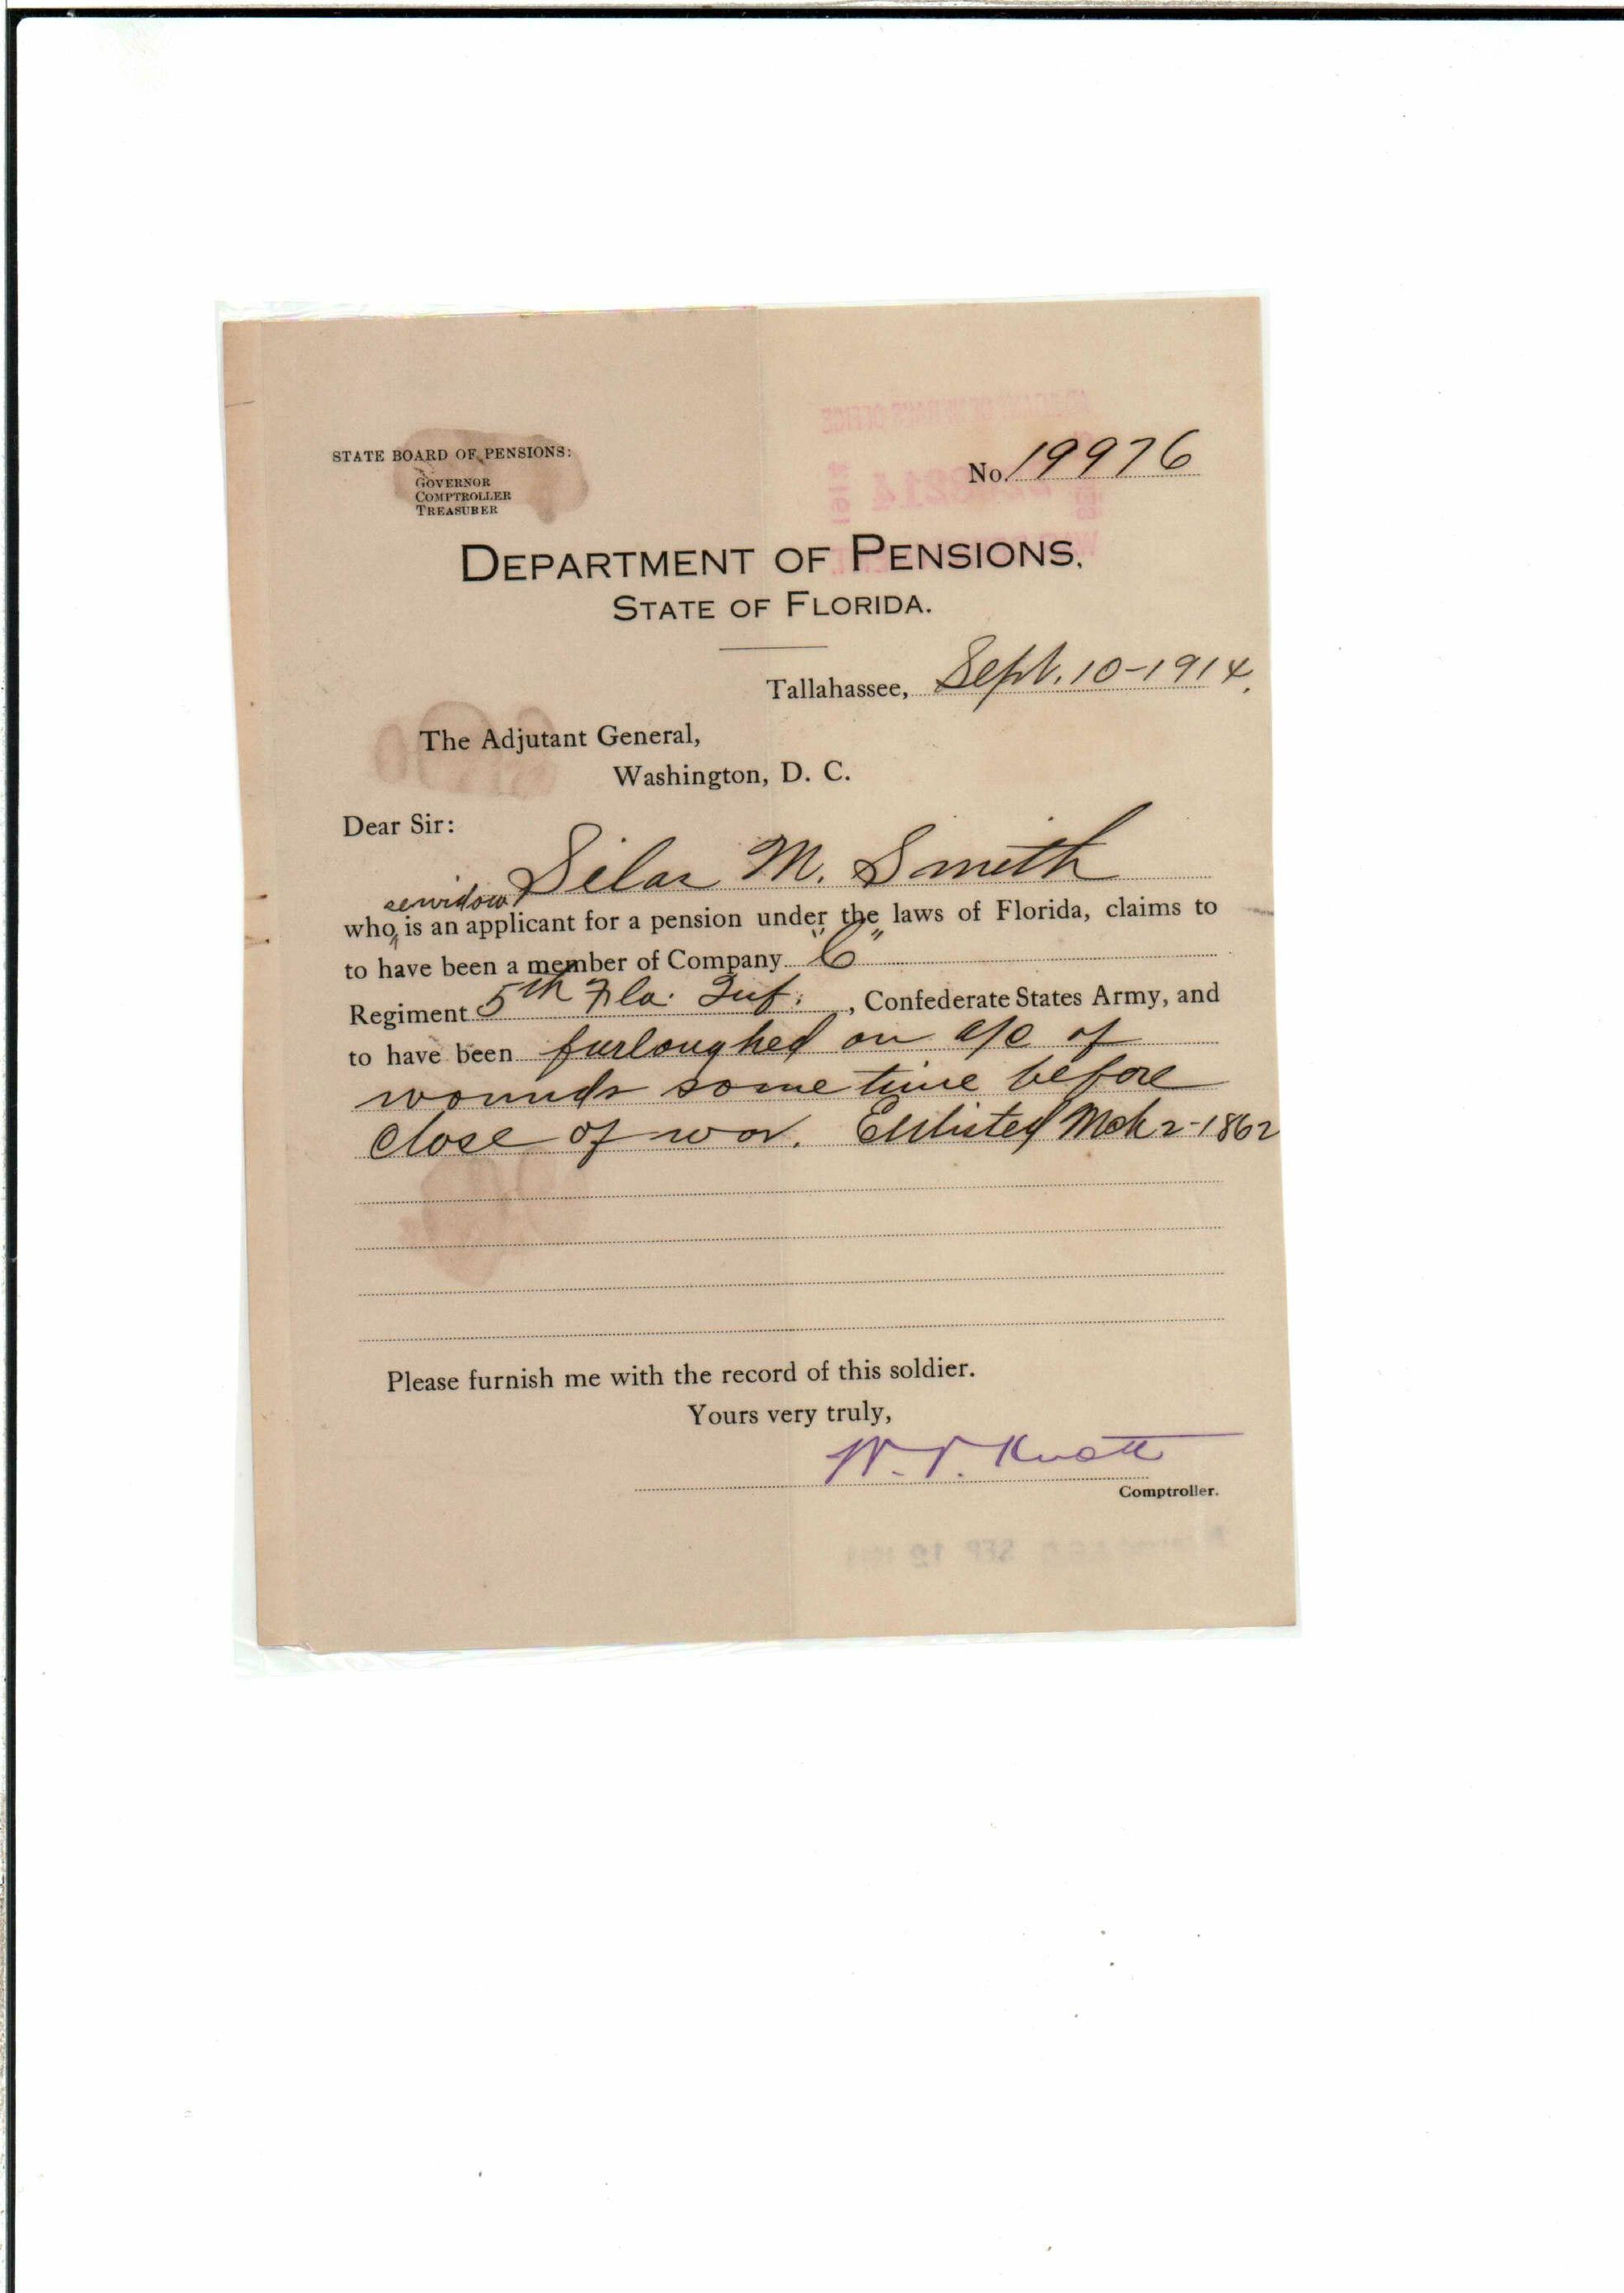 STATE BOARD OF PENSIONS:
GOVERNOR
COMPTROLLER
TREASURER
No. 19976
DEPARTMENT OF PENSIONS,
STATE OF FLORIDA.
Tallahassee, Sept. 10-1914.
The Adjutant General,
Washington, D. C.
Dear Sir:
Silas M. Smith
widow
who is an applicant for a pension under the laws of Florida, claims to
to have been a member of Company "C"
Regiment 5th Fla. Inf. , Confederate States Army, and
to have been furloughed on a/c of
wounds some time before
close of war. Enlisted Mch 2-1862
Please furnish me with the record of this soldier.
Yours very truly,
W. V. Knott
Comptroller.
SEP 12 1914